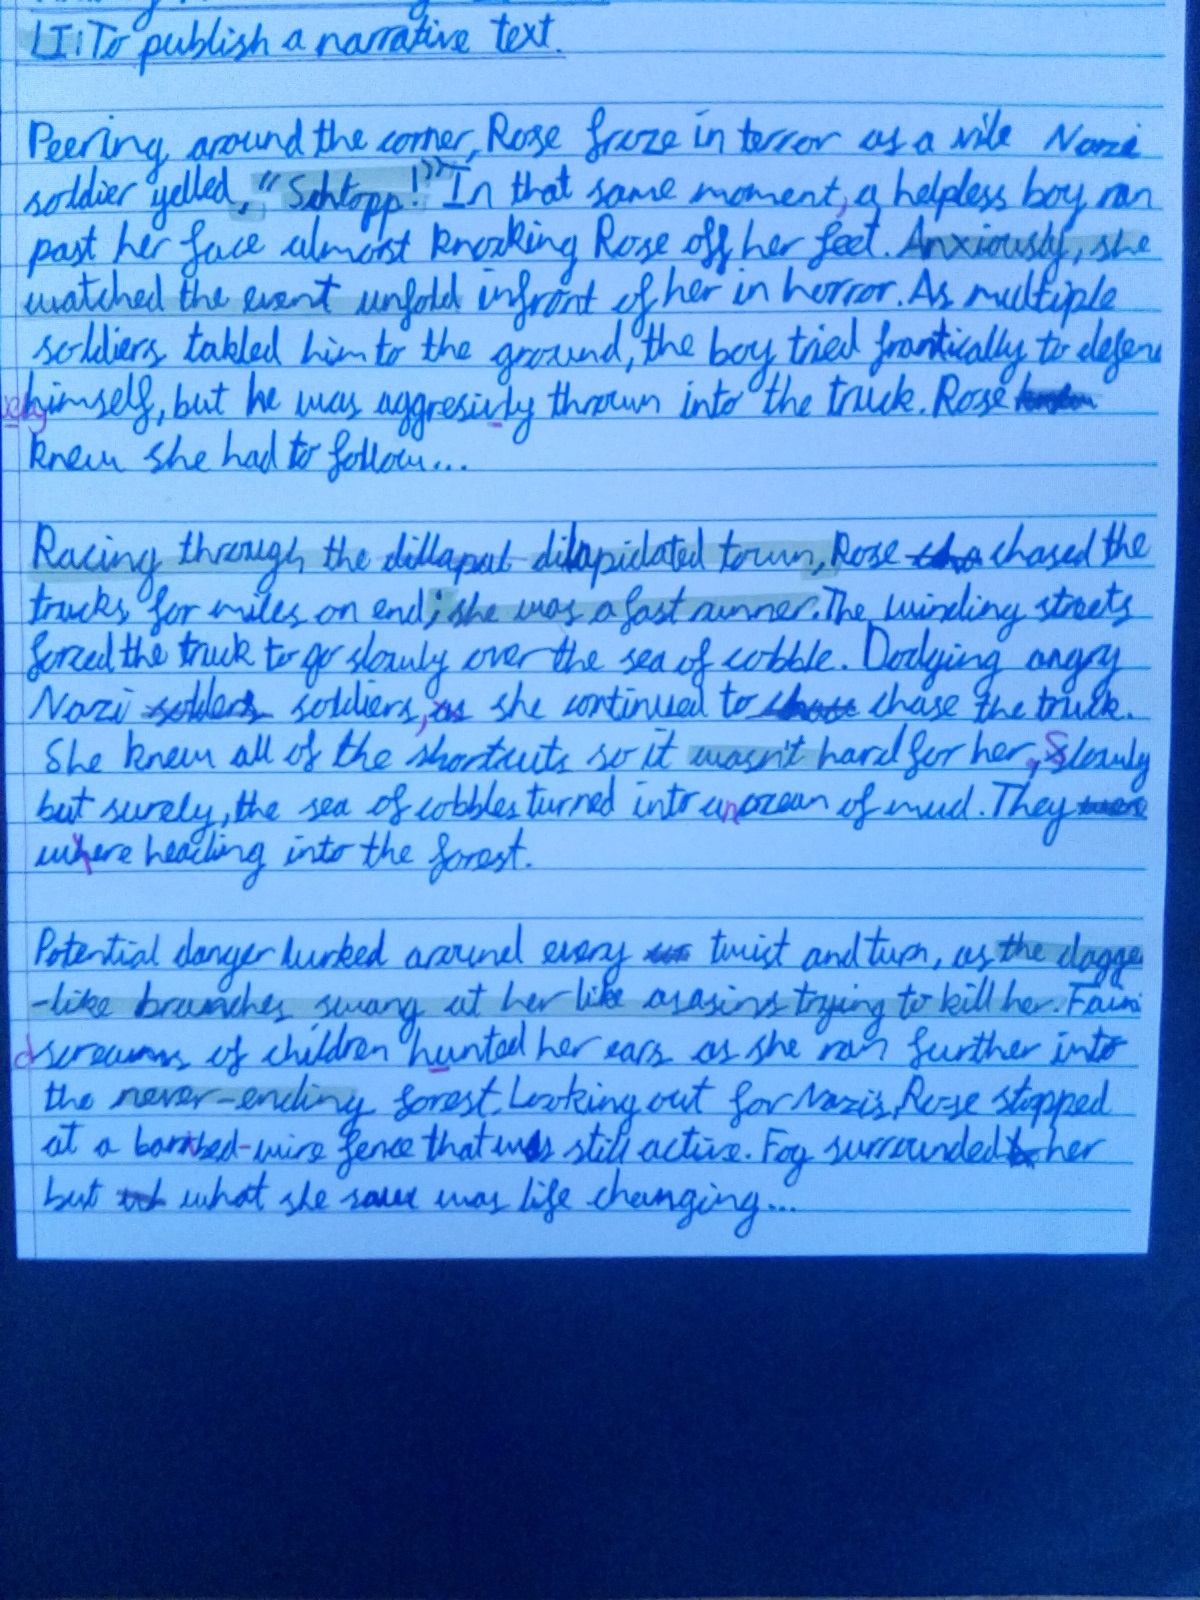 LI: To publish a narrative text.
Peering around the corner, Rose froze in terror as a vile Nazi
soldier yelled, "Schtopp!" In that same moment, a helpless boy ran
past her face almost knocking Rose off her feet. Anxiously, she
watched the event unfold infront of her in horror. As multiple
soldiers takled him to the ground, the boy tried frantically to defend
himself, but he was aggresivly thrown into the truck. Rose
knew she had to follow...
Racing through the dillapat dilapidated town, Rose chased the
trucks for miles on end; she was a fast runner. The winding streets
forced the truck to go slowly over the sea of cobble. Dodging angry
Nazi solders soldiers, as she continued to chase the truck.
She knew all of the shortcuts so it wasn't hard for her, Slowly
but surely, the sea of cobbles turned into an ocean of mud. They were
where heading into the forest.
Potential danger lurked around every twist and turn, as the dagge
-like branches swang at her like asasins trying to kill her. Faint
screams of children hunted her ears as she ran further into
the never-ending forest. Looking out for Nazis, Rose stopped
at a barbed-wire fence that was still active. Fog surrounded her
but what she saw was life changing...